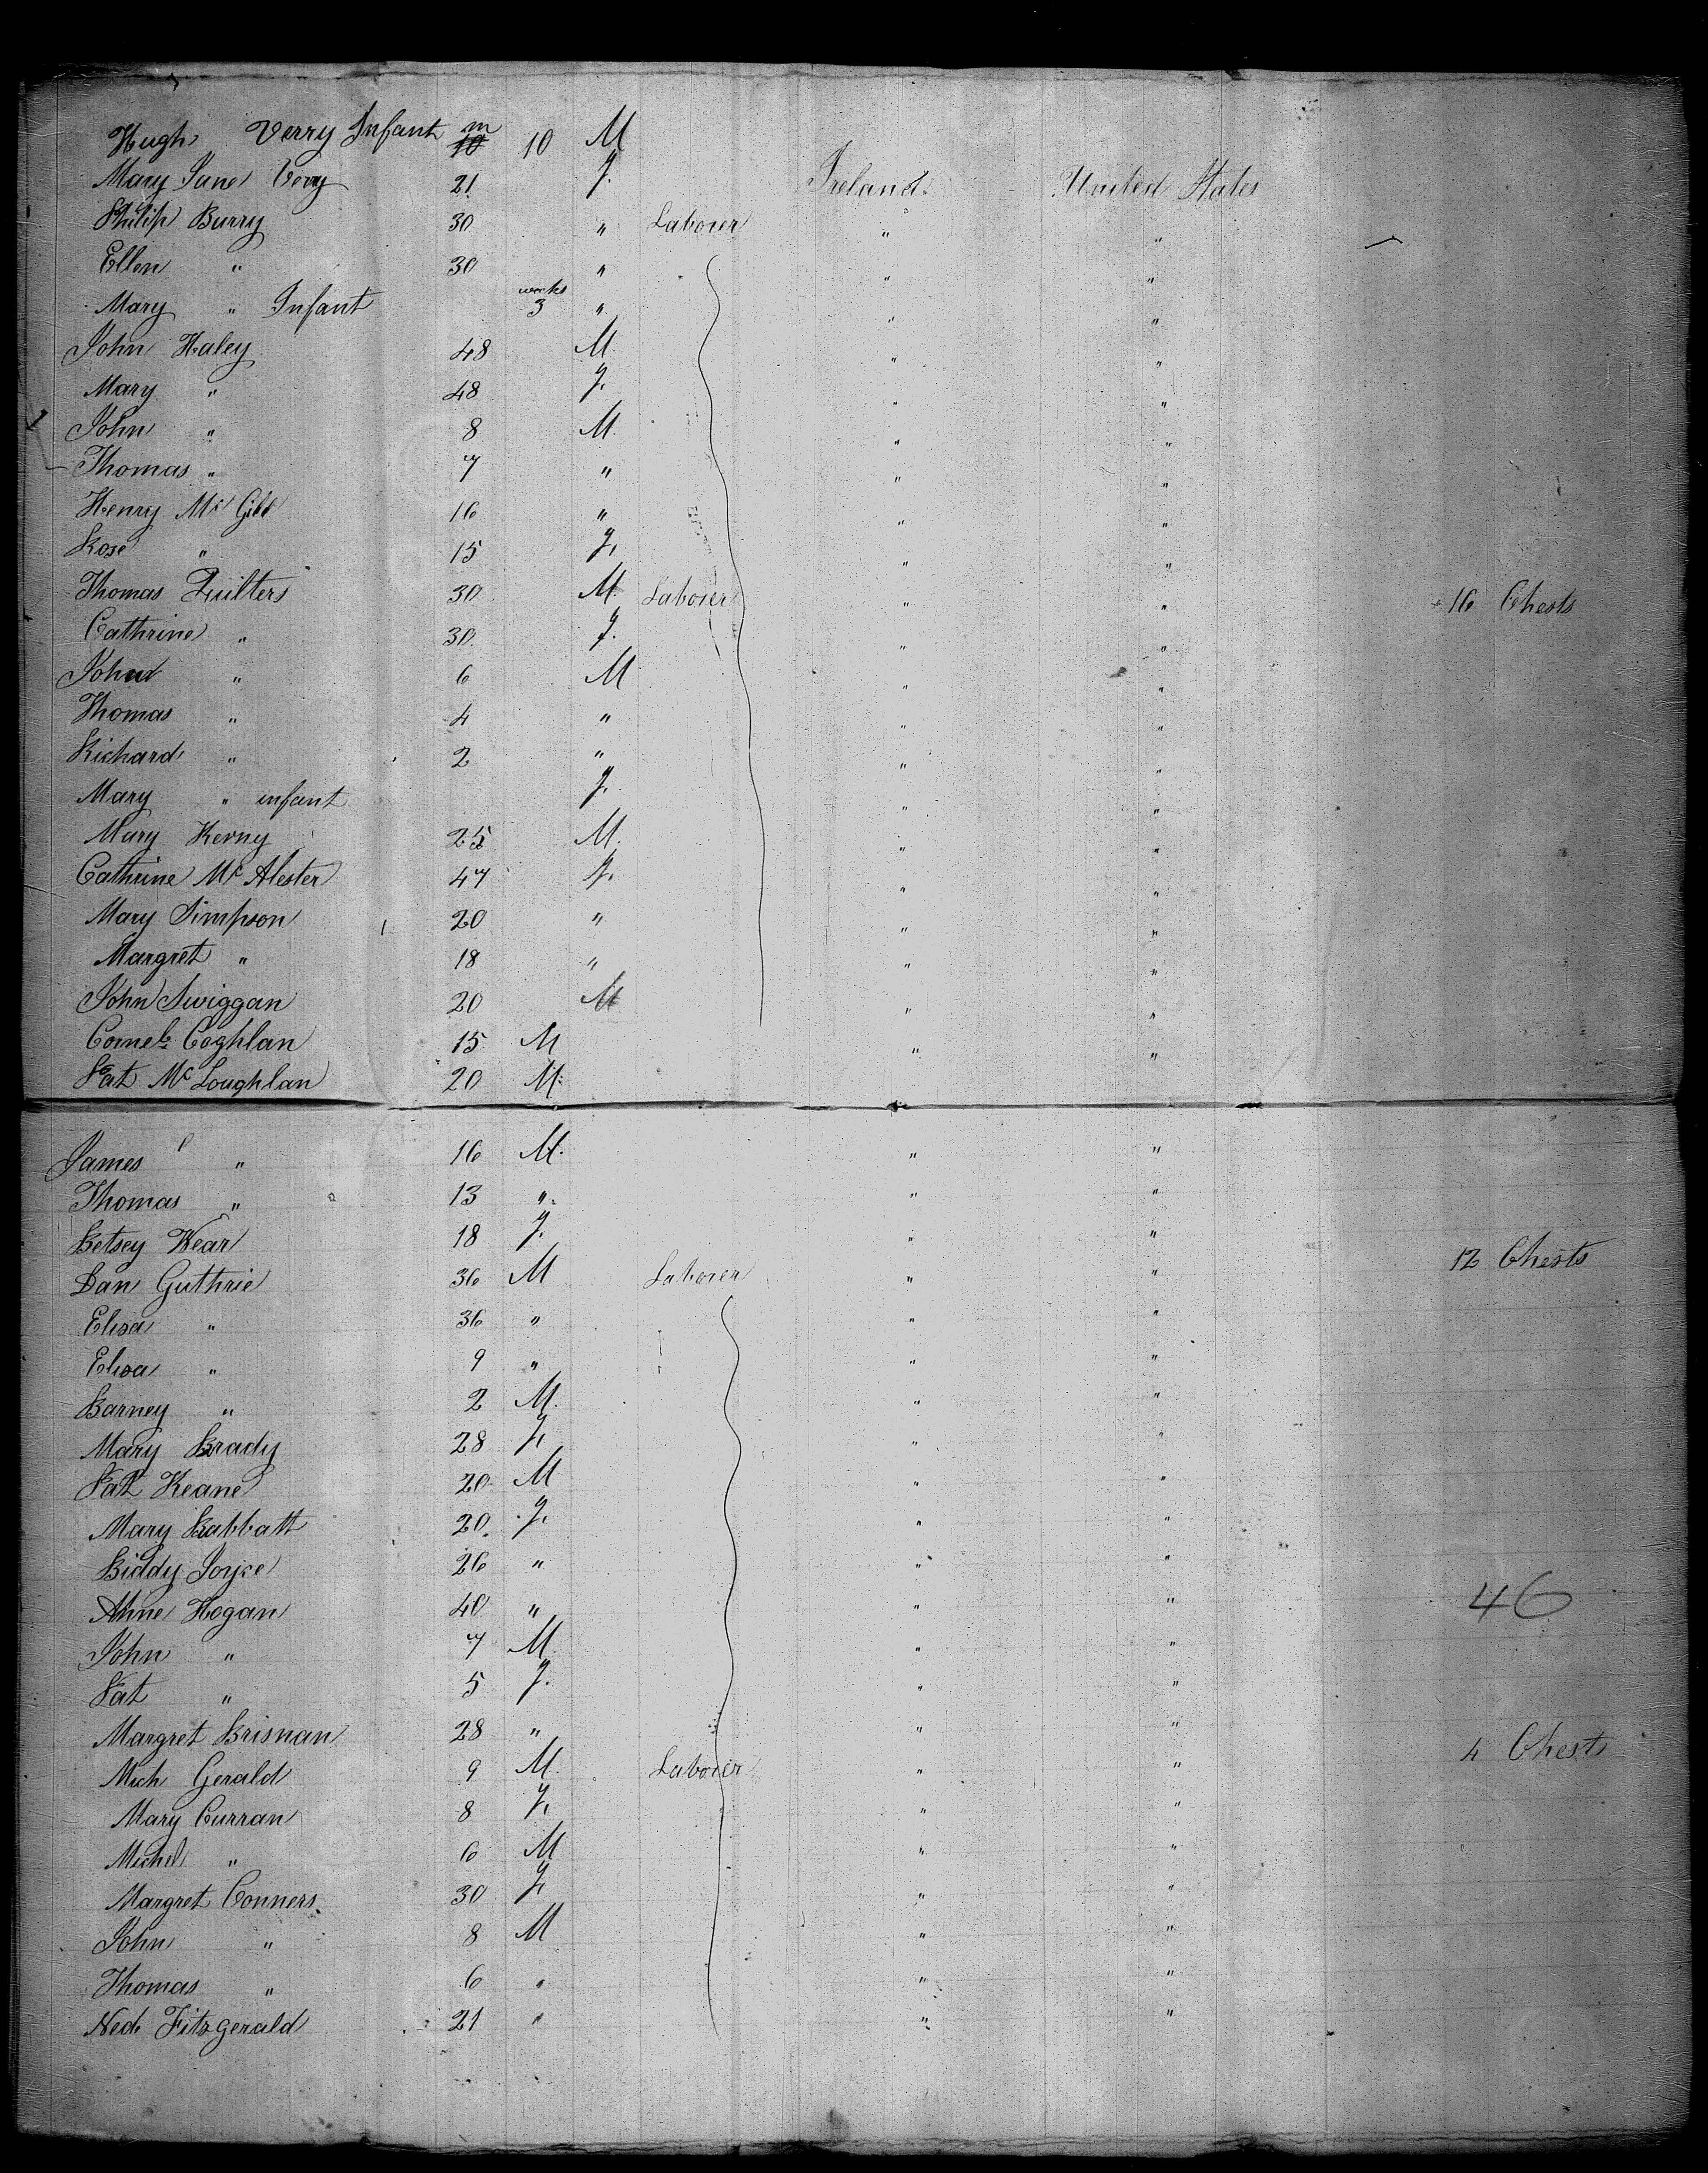 Hugh Verry Infant m 10 10 M
Mary Jane Verry 21 F. Ireland United States
Philip Burry 30 " Laborer " "
Ellen " 30 " " "
Mary " Infant weeks 3 " " "
John Haley 48 M " "
Mary " 48 F. " "
John " 8 M. " "
Thomas " 7 " " "
Henry Mc Gill 16 " " "
Rose " 15 F. " "
Thomas Quilters 30 M. Laborer " " 16 Chests
Cathrine " 30. F. " "
John " 6 M " "
Thomas " 4 " " "
Richard " 2 " " "
Mary " infant F. " "
Mary Kerny 25 M. " "
Cathrine Mc Alester 47 F. " "
Mary Simpson 20 " " "
Margret " 18 " " "
John Swiggan 20 M " "
Cornels Coghlan 15 M " "
Pat Mc Loughlan 20 M.
James " 16 M. " "
Thomas " 13 " " "
Betsey Wear 18 F. " "
Dan Guthrie 36 M Laborer " " 12 Chests
Elisa " 36 " " "
Elisa " 9 " " "
Barney " 2 M. " "
Mary Brady 28 F. " "
Pat Keane 20 M " "
Mary Babbatt 20. F. " "
Biddy Joyce 26 " " "
Anne Hogan 40 " " " 46
John " 7 M " "
Pat " 5 F. " "
Margret Brisnan 28 " " "
Mich Gerald 9 M. Laborer " " 4 Chests
Mary Curran 8 F. " "
Michel " 6 M " "
Margret Conners. 30 F. " "
John " 8 M " "
Thomas " 6 " " "
Ned Fitzgerald 21 " " "